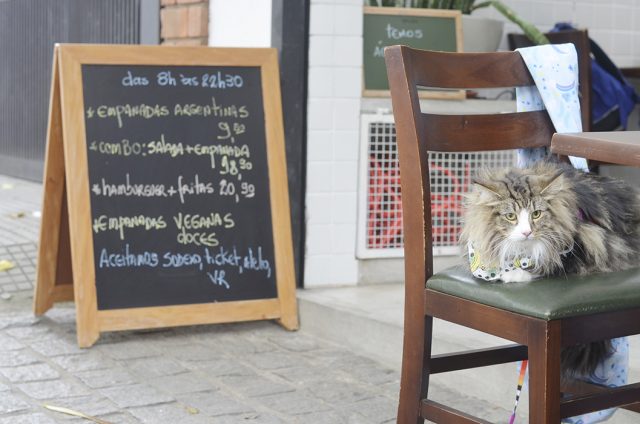 TEMOS
das 8h às 22h30
*EMPANADAS ARGENTINAS
9,50
*COMBO: SALADA + EMPANADA
18,50
*hamburguer + fritas 20,90
*EMPANADAS VEGANAS
DOCES
ACEITAMOS SODEXO, TICKET, ALELO,
VR